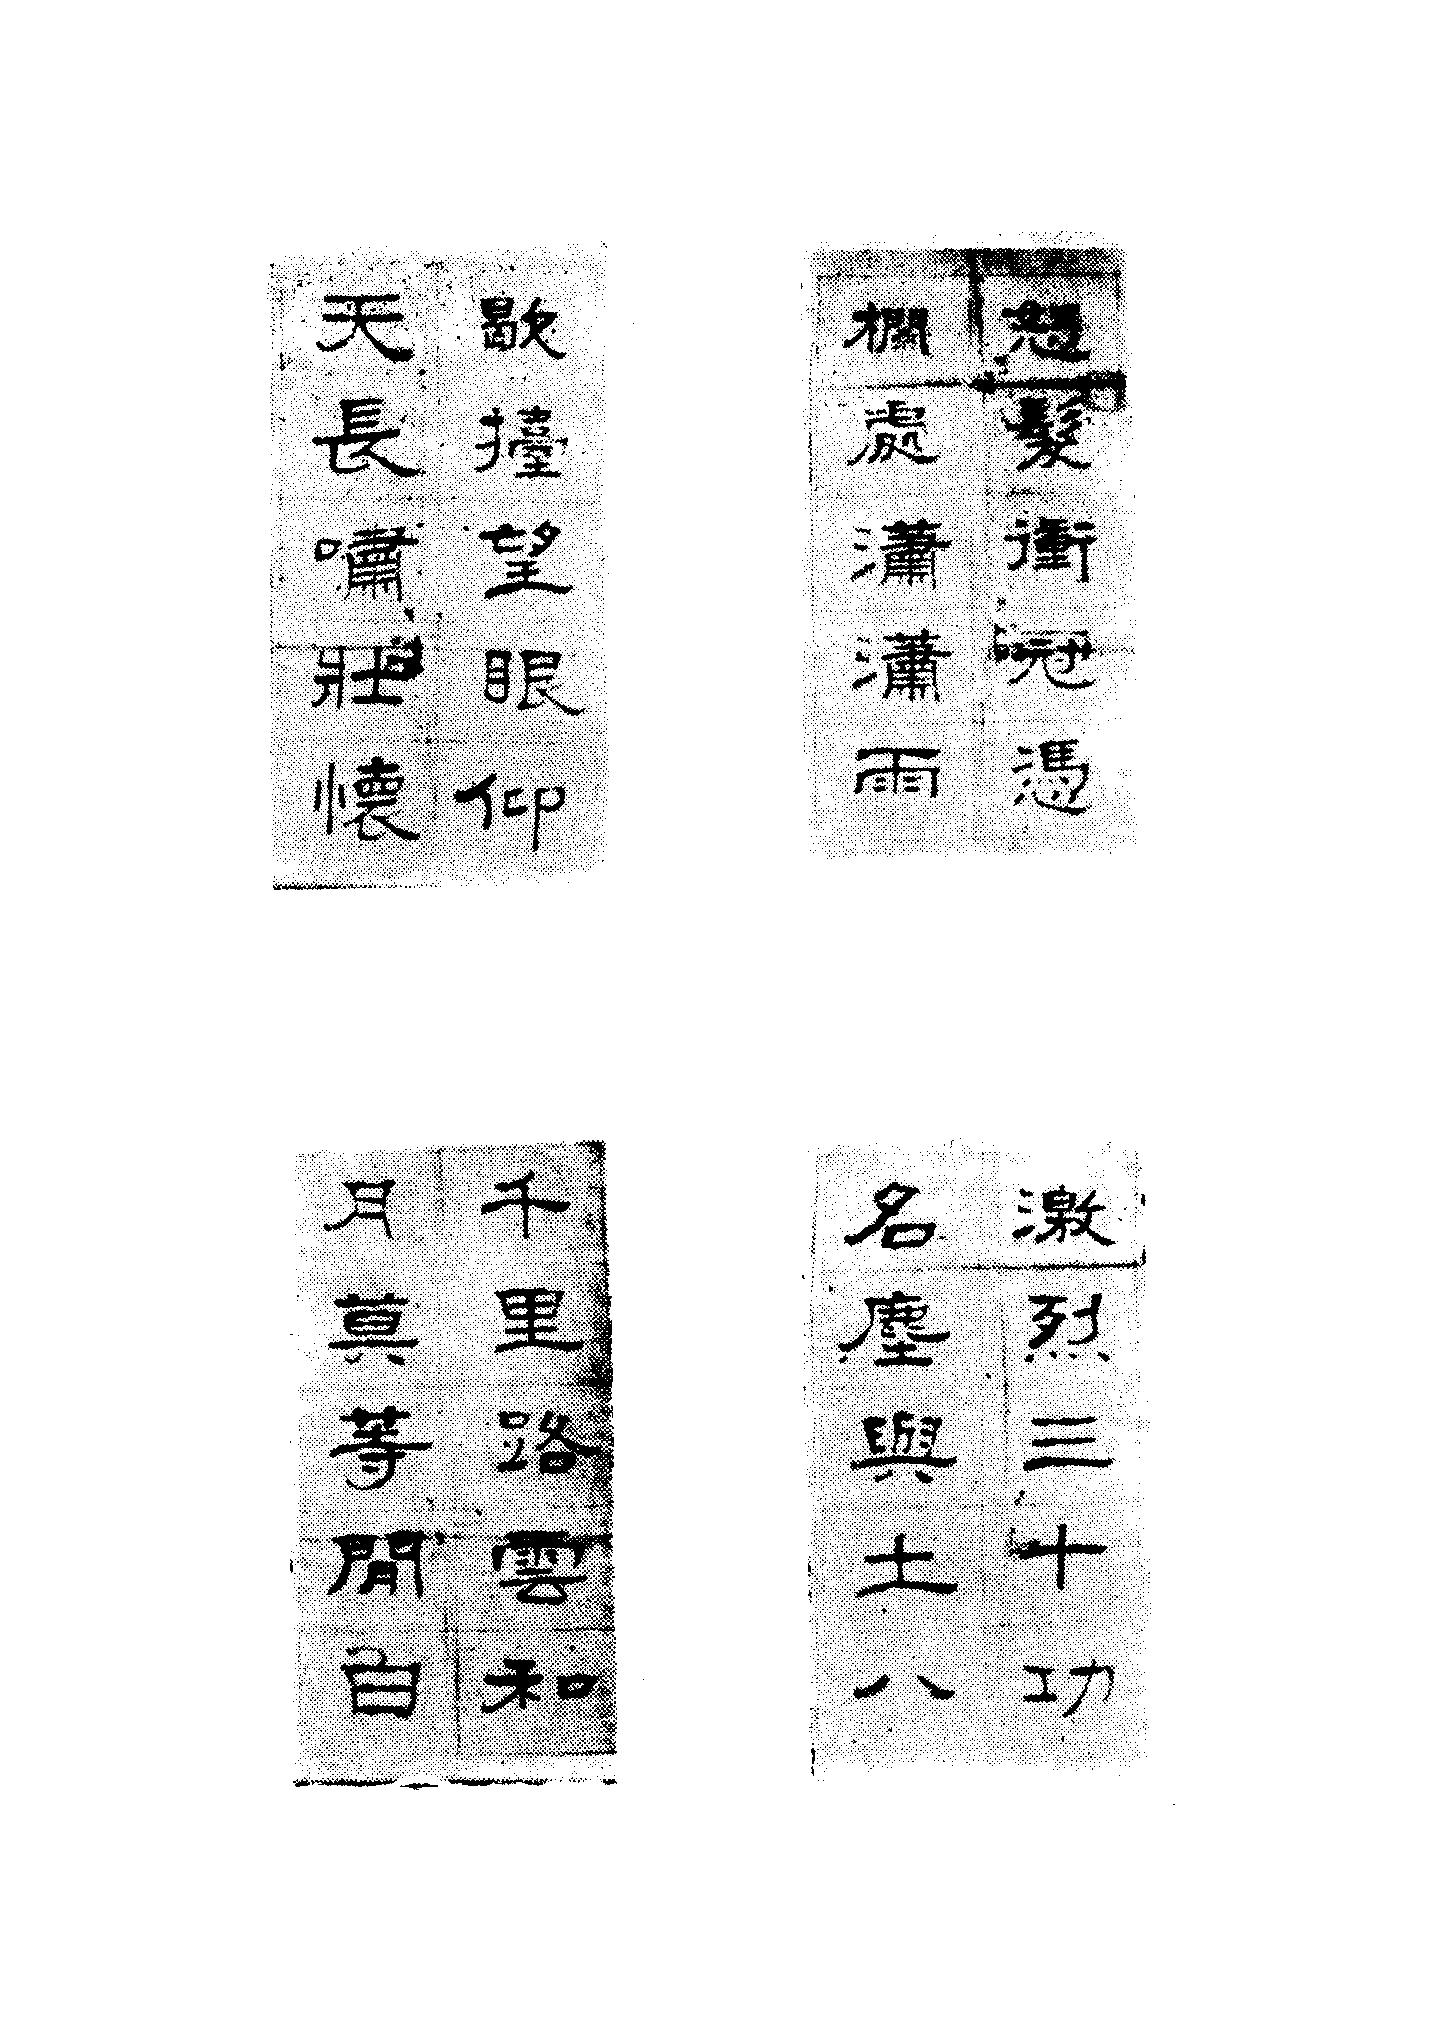 怒髮衝冠憑
欄處瀟瀟雨
歇擡望眼仰
天長嘯壯懷
激烈三十功
名塵與土八
千里路雲和
月莫等閒自